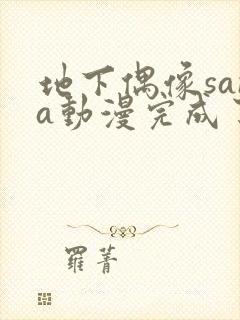 地下偶像sa
a動漫完成
羅菁